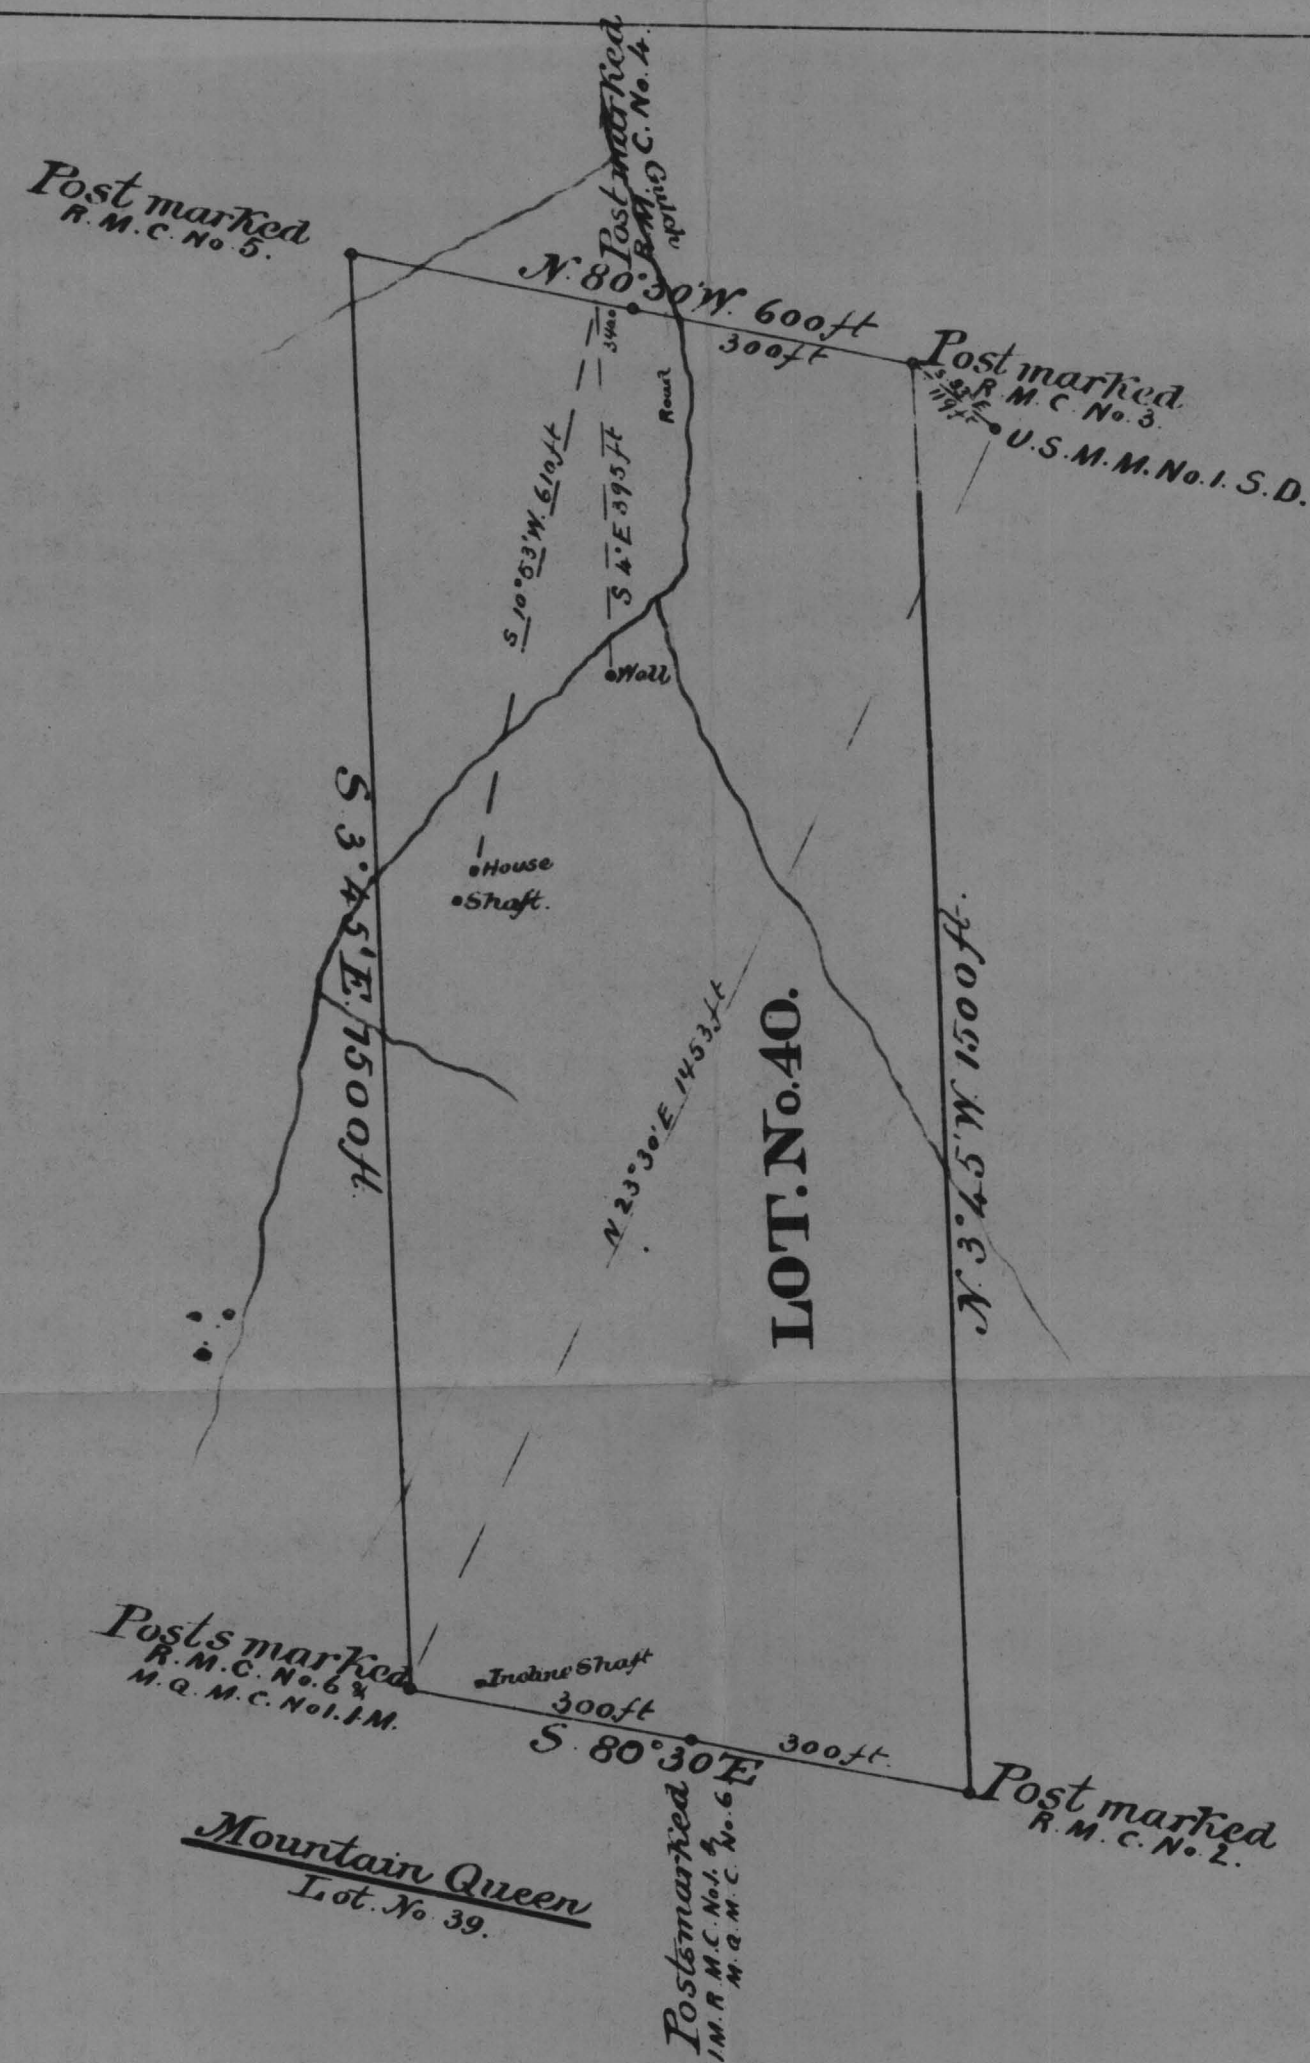 Post marked
R. M. C. No. 4.
Gulch
Post marked
R. M. C. No. 5.
N. 80°30'W. 600ft
300ft
Post marked
R. M. C. No. 3.
119 ft
U.S.M.M. No. 1. S.D.
Road
S 10°53'W. 610ft
S 4°E 395ft
Well
House
Shaft.
S. 3°45'E. 1500ft.
N. 3°45'W. 1500ft.
N 23°30'E 1453ft
LOT. No. 40.
Posts marked
R. M. C. No. 6 &
M. Q. M. C. No 1. I. M.
Incline Shaft
300ft
300ft.
S. 80°30'E
Post marked
R. M. C. No. 2.
Posts marked
I. M. R. M. C. No. 1. &
M. Q. M. C. No. 6
Mountain Queen
Lot. No 39.